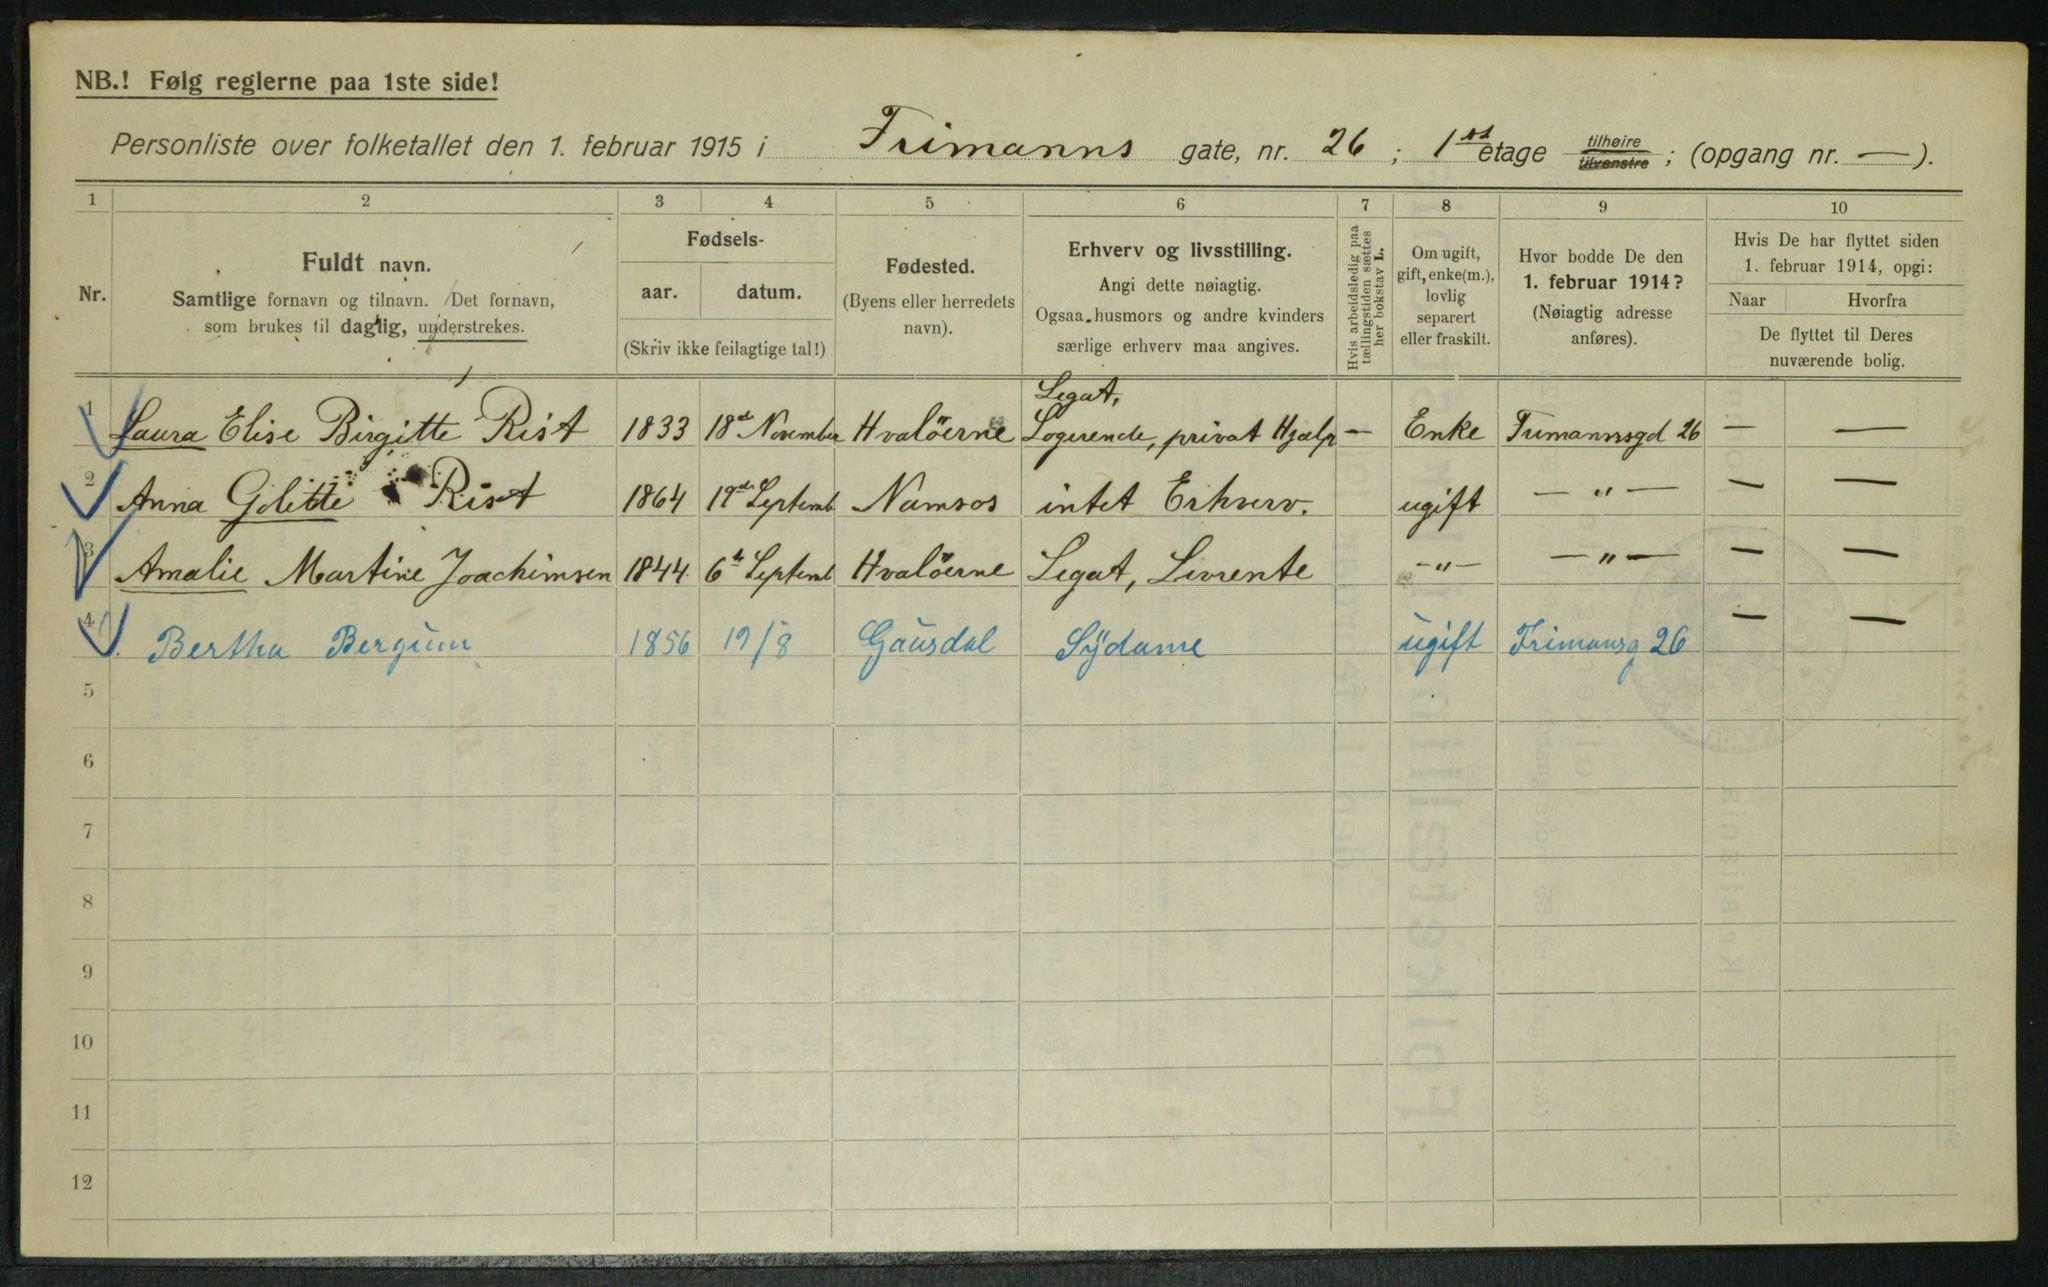 NB.! Følg reglerne paa 1ste side!
Personliste over folketallet den 1. februar 1915 i Frimanns gate, nr. 26 ; 1st etage tilhøire tilvenstre ; (opgang nr. — ).
1 2 3 4 5 6 7 8 9 10
Nr.
Fuldt navn.
Samtlige fornavn og tilnavn. Det fornavn,
som brukes til daglig, understrekes.
Fødsels-
aar. datum.
(Skriv ikke feilagtige tal!)
Fødested.
(Byens eller herredets
navn).
Erhverv og livsstilling.
Angi dette nøiagtig.
Ogsaa husmors og andre kvinders
særlige erhverv maa angives.
Hvis arbeidsledig paa
tællingstiden sættes
her bokstav L.
Om ugift,
gift, enke(m.),
lovlig
separert
eller fraskilt.
Hvor bodde De den
1. februar 1914?
(Nøiagtig adresse
anføres).
Hvis De har flyttet siden
1. februar 1914, opgi:
Naar Hvorfra
De flyttet til Deres
nuværende bolig.
Legat,
1 Laura Elise Birgitte Rist 1833 18de November Hvalöerne Logerende, privat Hjælp — Enke Frimannsgd 26 — —
2 Anna Golitte Rist 1864 19de Septemb Namsos intet Erhverv. ugift — „ — — —
3 Amalie Martine Joachimsen 1844 6te Septemb Hvalöerne Legat, Livrente — „ — — „ — — —
4 Bertha Bergum 1856 19/8 Gausdal Sydame ugift Frimansg 26 — —
5
6
7
8
9
10
11
12